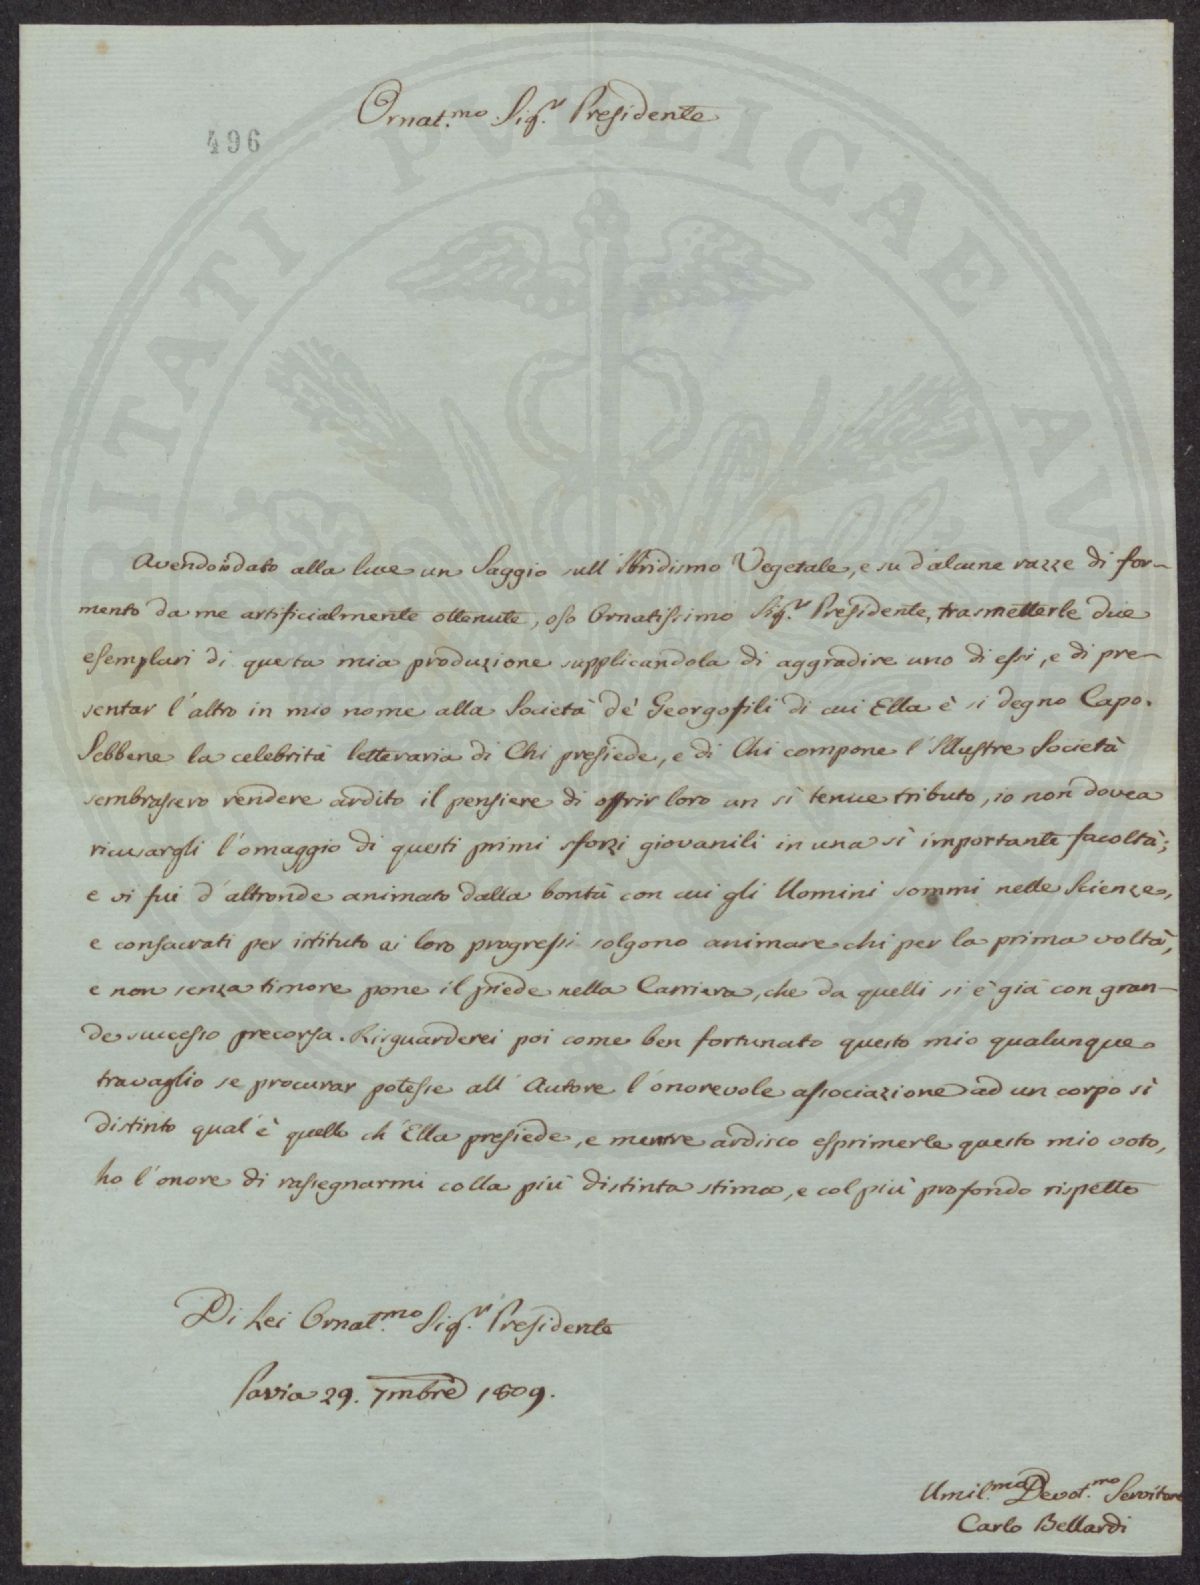 Ornat.mo Sig.r Presidente
496
Avendo io dato alla luce un Saggio sull'Ibridismo Vegetale, e su d'alcune razze di for-
mento da me artificialmente ottenute, oso Ornatissimo Sig.r Presidente, trasmetterle due
esemplari di questa mia produzione supplicandola di aggradire uno di essi, e di pre-
sentar l'altro in mio nome alla Società de' Georgofili di cui Ella è si degno Capo.
Sebbene la celebrità letteraria di Chi presiede, e di Chi compone l'Illustre Società
sembrassero rendere ardito il pensiere di offrir loro un sì tenue tributo, io non dovea
ricusargli l'omaggio di questi primi sforzi giovanili in una sì importante facoltà;
e vi fui d'altronde animato dalla bontà con cui gli Uomini sommi nelle Scienze,
e consacrati per istituto ai loro progressi solgono animare chi per la prima volta,
e non senza timore pone il piede nella Carriera, che da quelli si è già con gran-
de successo precorsa. Risguarderei poi come ben fortunato questo mio qualunque
travaglio se procurar potesse all'Autore l'onorevole associazione ad un corpo sì
distinto qual'è quello ch'Ella presiede, e mentre ardisco esprimerle questo mio voto,
ho l'onore di rassegnarmi colla più distinta stima, e col più profondo rispetto
Di Lei Ornat.mo Sig.r Presidente
Pavia 29. 7mbre 1809.
Umil.mo Devot.mo Servitore
Carlo Bellardi
PUBLICAE